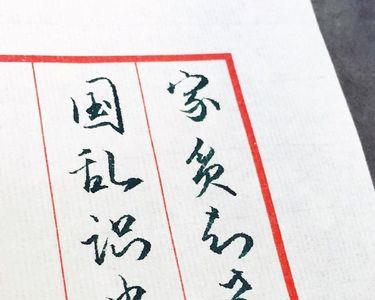 家贫知孝
国乱识忠